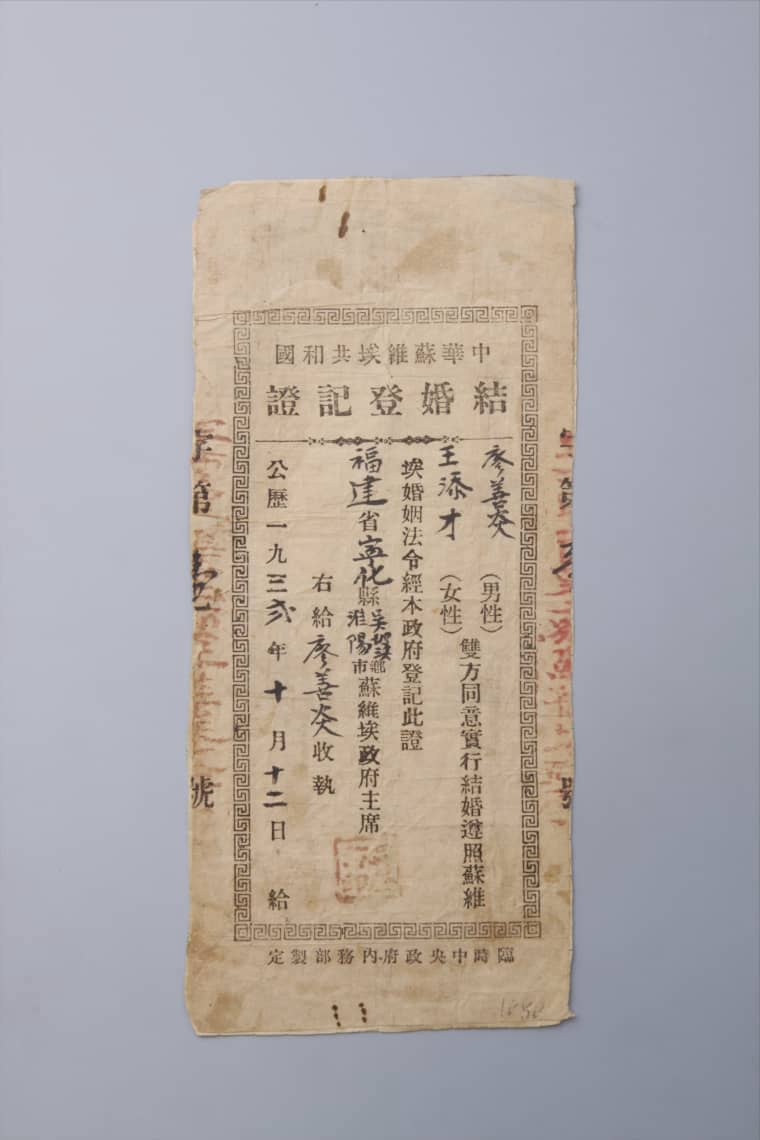 中華蘇維埃共和國
結婚登記證
廖善炎（男性）
王添才（女性）
雙方同意實行結婚遵照蘇維
埃婚姻法令經本政府登記此證
福建省寧化縣
淮陽市
鄉
蘇維埃政府主席
右給廖善炎收執
公歷一九三弍年十月十二日給
臨時中央政府內務部製定
字第
號
字第
號